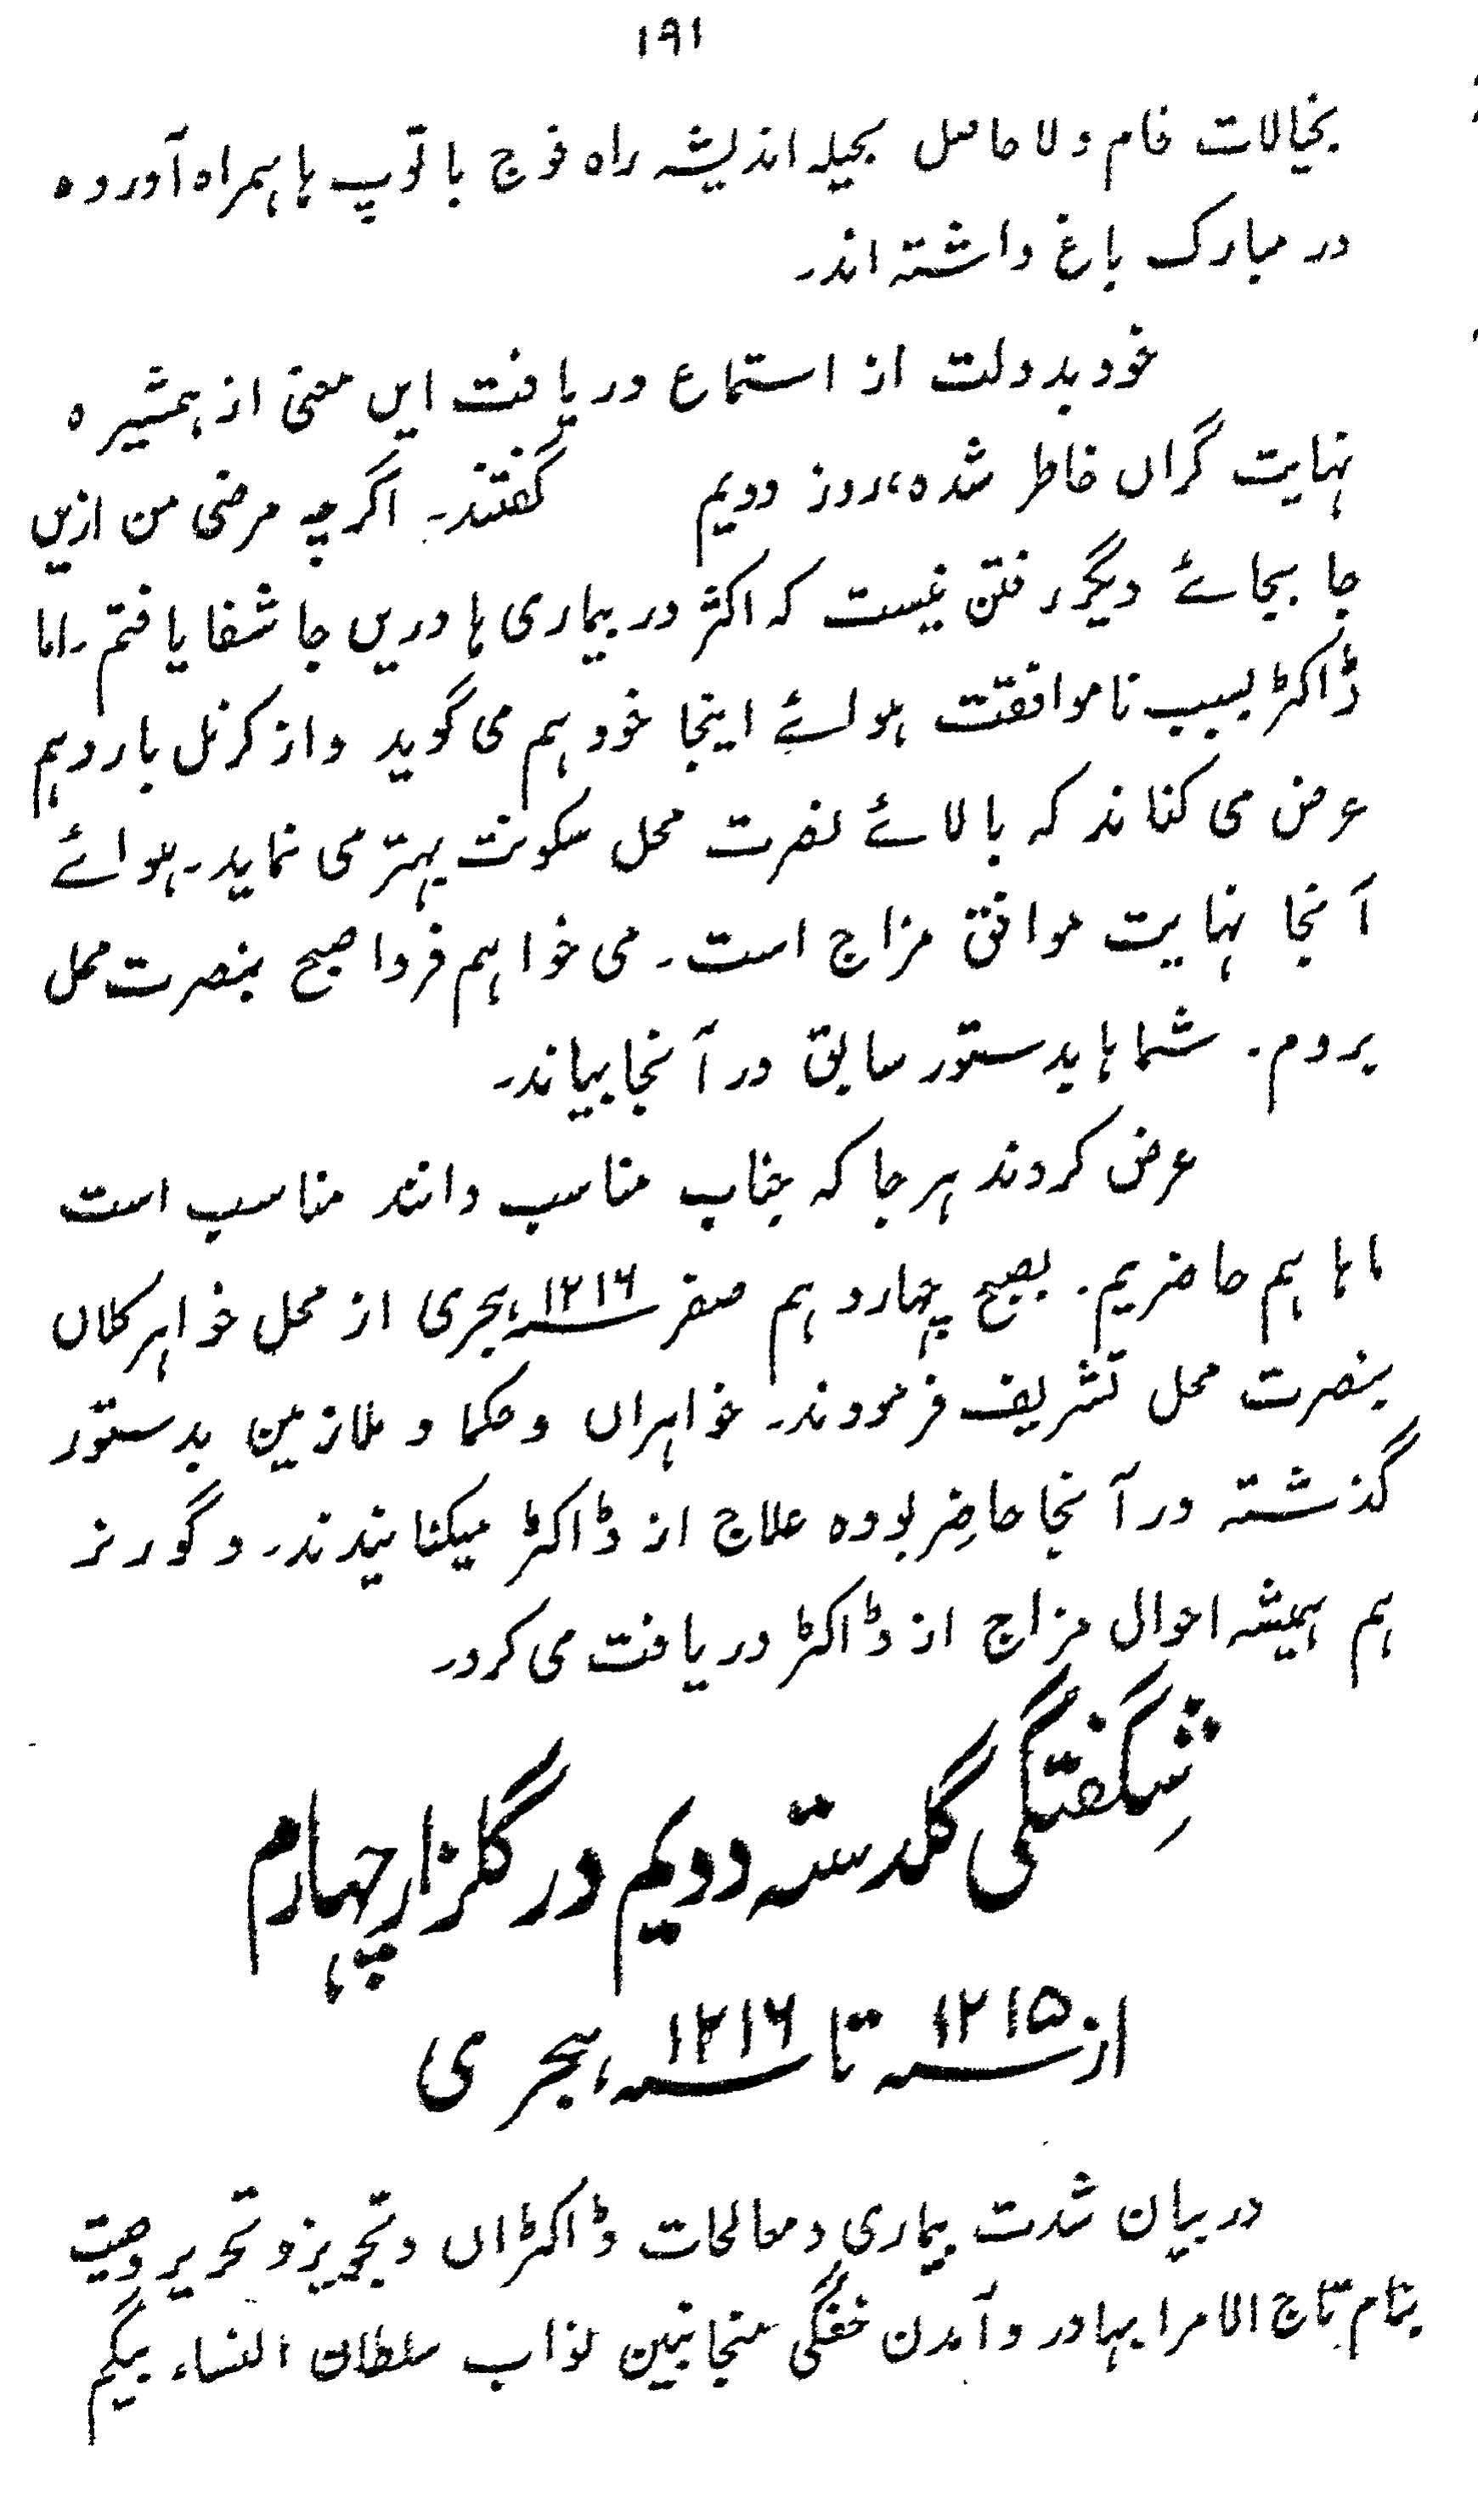 ۱۹۱
بخیالات خام و لا حاصل بحیلہ اندیشہ راہ فوج با توپ ہا ہمراہ آوردہ
در مبارک باغ داشتہ اند۔
خود بدولت از استماع دریافت ایں معنی از ہمشیرہ
نہایت گراں خاطر شدہ، روز دویم گفتند۔ اگرچہ مرضی من ازیں
جا بجائے دیگر رفتن نیست کہ اکثر در بیماری ہا دریں جا شفا یافتم۔ اما
ڈاکٹر بسبب ناموافقت ہوائے اینجا خود ہم می گوید و از کرنل بارد ہم
عرض می کناند کہ بالائے نصرت محل سکونت بہتر می نماید۔ ہوائے
آنجا نہایت موافق مزاج است۔ می خواہم فردا صبح بنصرت محل
بروم۔ شماہا بدستور سابق در آنجا بیاند۔
عرض کردند ہر جا کہ جناب مناسب دانند مناسب است
ماہا ہم حاضریم۔ بصبح چہاردہم صفر ۱۲۱۶ ہجری از محل خواہر کلاں
بنصرت محل تشریف فرمودند۔ خواہراں و حکما و ملازمین بدستور
گذشتہ در آنجا حاضِر بودہ علاج از ڈاکٹر میکنایندند۔ و گورنر
ہم ہمیشہ احوال مزاج از ڈاکٹر دریافت می کرد۔
شِگفتگی گلدستہ دویم در گلزار چہارم
از ۱۲۱۵ تا ۱۲۱۶ ہجری
در بیان شدت بیماری و معالجات ڈاکٹراں و تجویز و تحریر وصیت
بنام تاج الامرا بہادر و آمدن خفگی منجانبین نواب سلطان النساء بیگم